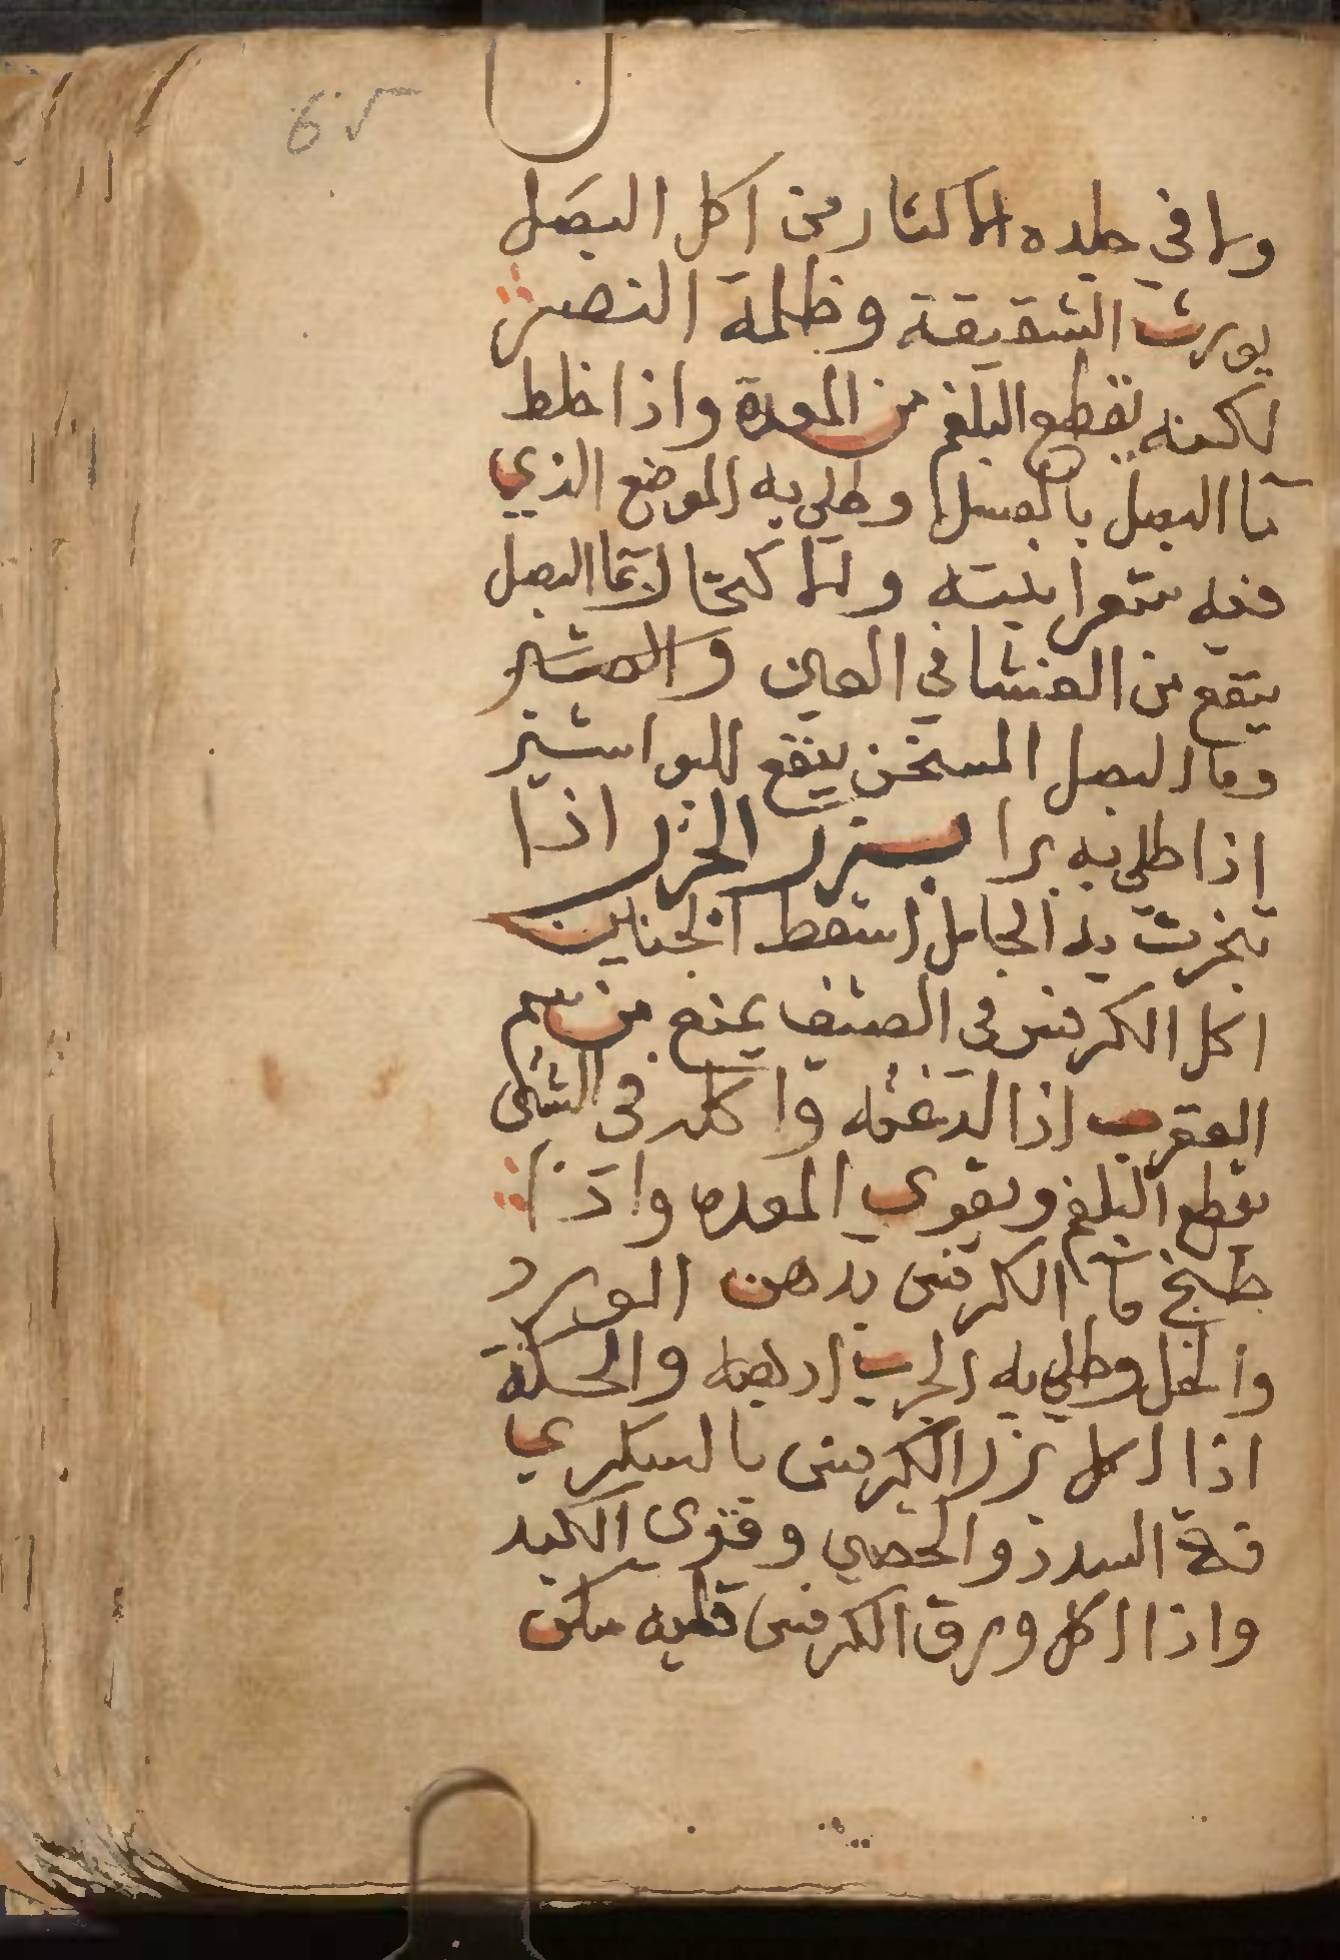 ولا في جلده الاكثار من اكل البصل
يورث الشقيقة وظلمة النصر
لكنه يقطع البلغم من المعدة واذا خلط
مآ البصل بالعسل وطلي به الموضع الذي
فيه شعرا نبته ولاكتحال بما البصل
ينفع من العشا في العين
وما البصل المسخن ينفع للبواشير
اذا طلي به برا بزر الجزر اذا
تبخرت به الحامل اسقط الجنين
اكل الكرفس في الصيف يمنع من سم
العقرب اذا لدغته واكله في الشتى
يقطع البلغم ويقوي المعده واذا
طبخ مآ الكرفس بدهن الورد
والخل وطلي به الجرب اذهبه والحكة
اذا اكل بزر الكرفس بالسكر ي
فتح السدد والحصي وقوى الكبد
واذا اكل ورق الكرفس قليه سكن